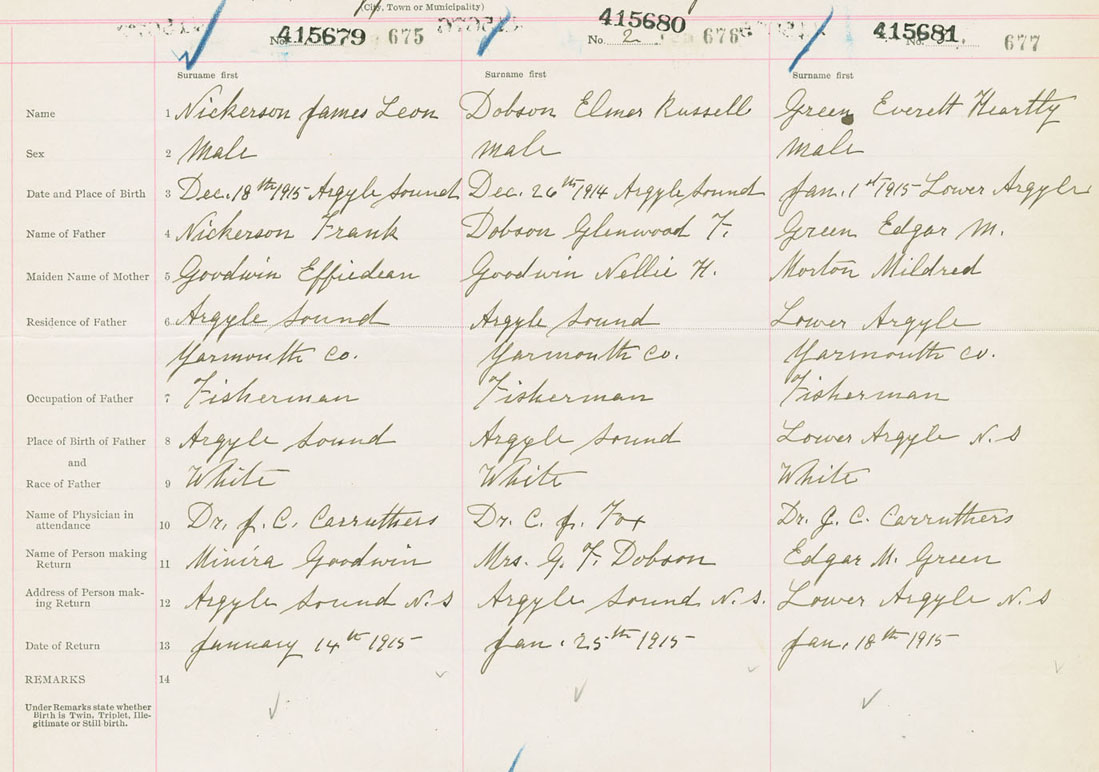 (City, Town or Municipality)
No. 415679 675
No. 2 415680 676
No. 415681 677
Surname first Surname first Surname first
Name 1 Nickerson James Leon Dobson Elmer Russell Green Everett Heartly
Sex 2 Male male male
Date and Place of Birth 3 Dec. 18th 1915 Argyle Sound Dec. 26th 1914 Argyle Sound Jan. 1st 1915 Lower Argyle
Name of Father 4 Nickerson Frank Dobson Glenwood F. Green Edgar M.
Maiden Name of Mother 5 Goodwin Effiedean Goodwin Nellie H. Morton Mildred
Residence of Father 6 Argyle Sound Argyle Sound Lower Argyle
Yarmouth Co. Yarmouth Co. Yarmouth Co.
Occupation of Father 7 Fisherman Fisherman Fisherman
Place of Birth of Father 8 Argyle Sound Argyle Sound Lower Argyle N.S
and
Race of Father 9 White White White
Name of Physician in
attendance 10 Dr. J. C. Carruthers Dr. C. J. Fox Dr. J. C. Carruthers
Name of Person making
Return 11 Minira Goodwin Mrs. G. F. Dobson Edgar M. Green
Address of Person mak-
ing Return 12 Argyle Sound N.S Argyle Sound N.S. Lower Argyle N.S
Date of Return 13 January 14th 1915 Jan. 25th 1915 Jan. 18th 1915
REMARKS 14
Under Remarks state whether
Birth is Twin, Triplet, Ille-
gitimate or Still birth.